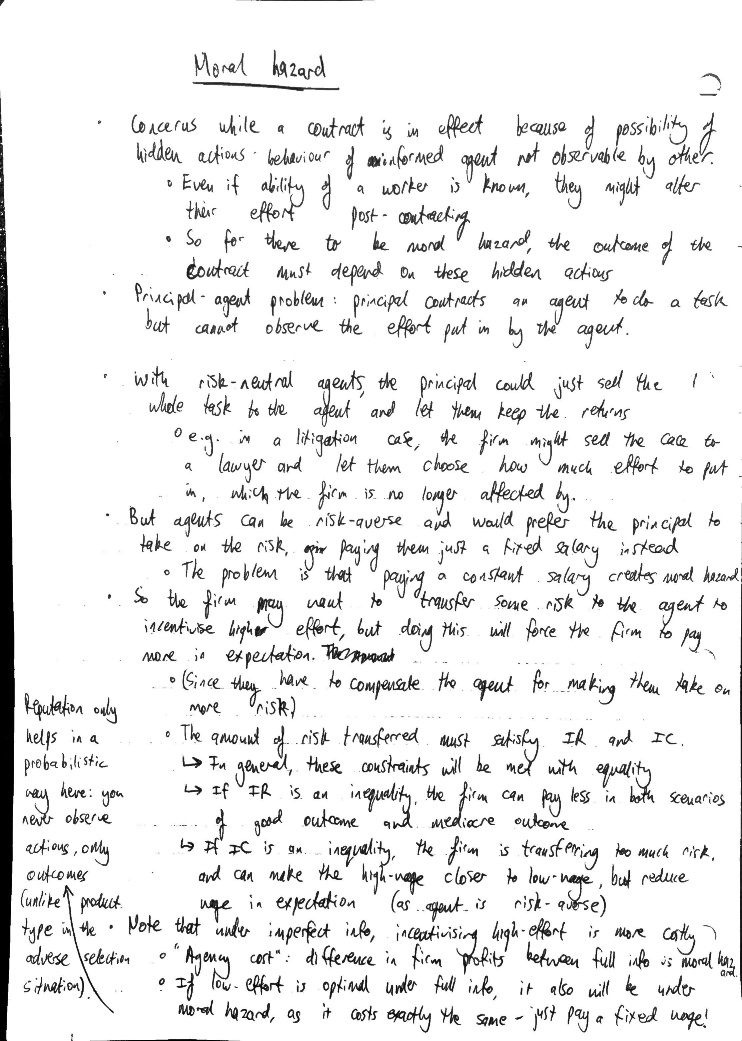 Moral hazard
• Concerns while a contract is in effect because of possibility of
hidden actions - behaviour of informed agent not observable by other.
◦ Even if ability of a worker is known, they might alter
their effort post-contracting
• So for there to be moral hazard, the outcome of the
contract must depend on these hidden actions
• Principal-agent problem: principal contracts an agent to do a task
but cannot observe the effort put in by the agent.
• With risk-neutral agents, the principal could just sell the
whole task to the agent and let them keep the returns
◦ e.g. in a litigation case, the firm might sell the case to
a lawyer and let them choose how much effort to put
in, which the firm is no longer affected by.
• But agents can be risk-averse and would prefer the principal to
take on the risk, paying them just a fixed salary instead
◦ The problem is that paying a constant salary creates moral hazard
• So the firm may want to transfer some risk to the agent to
incentivise higher effort, but doing this will force the firm to pay
more in expectation.
◦ (Since they have to compensate the agent for making them take on
more risk)
◦ The amount of risk transferred must satisfy IR and IC.
↳ In general, these constraints will be met with equality
↳ If IR is an inequality, the firm can pay less in both scenarios
of good outcome and mediocre outcome
↳ If IC is an inequality, the firm is transferring too much risk,
and can make the high-wage closer to low-wage, but reduce
wage in expectation (as agent is risk-averse)
• Note that under imperfect info, incentivising high-effort is more costly
◦ "Agency cost": difference in firm profits between full info vs moral hazard.
◦ If low-effort is optimal under full info, it also will be under
moral hazard, as it costs exactly the same - just pay a fixed wage!
Reputation only
helps in a
probabilistic
way here: you
never observe
actions, only
outcomes
(unlike product
type in the
adverse selection
situation).